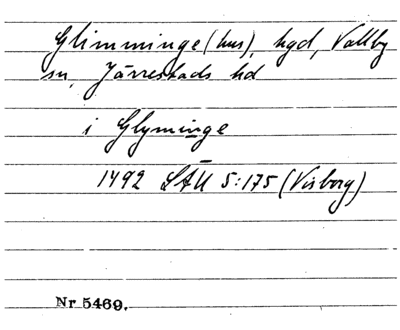 Glimminge (hus), hgd, Vallby
sn, Järrestads hd
i Glyminge
1492 LÄU 5:175 (Visborg)
Nr 5469.